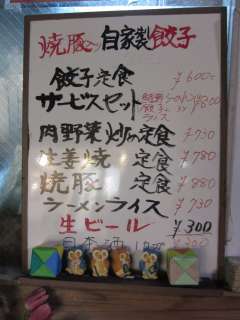 焼豚 自家製餃子
餃子定食 ¥600
サービスセット ¥600
ライス
肉野菜炒め定食 ¥750
生姜焼 定食 ¥780
焼豚 定食 ¥880
ラーメンライス ¥730
生ビール ¥300
日本酒